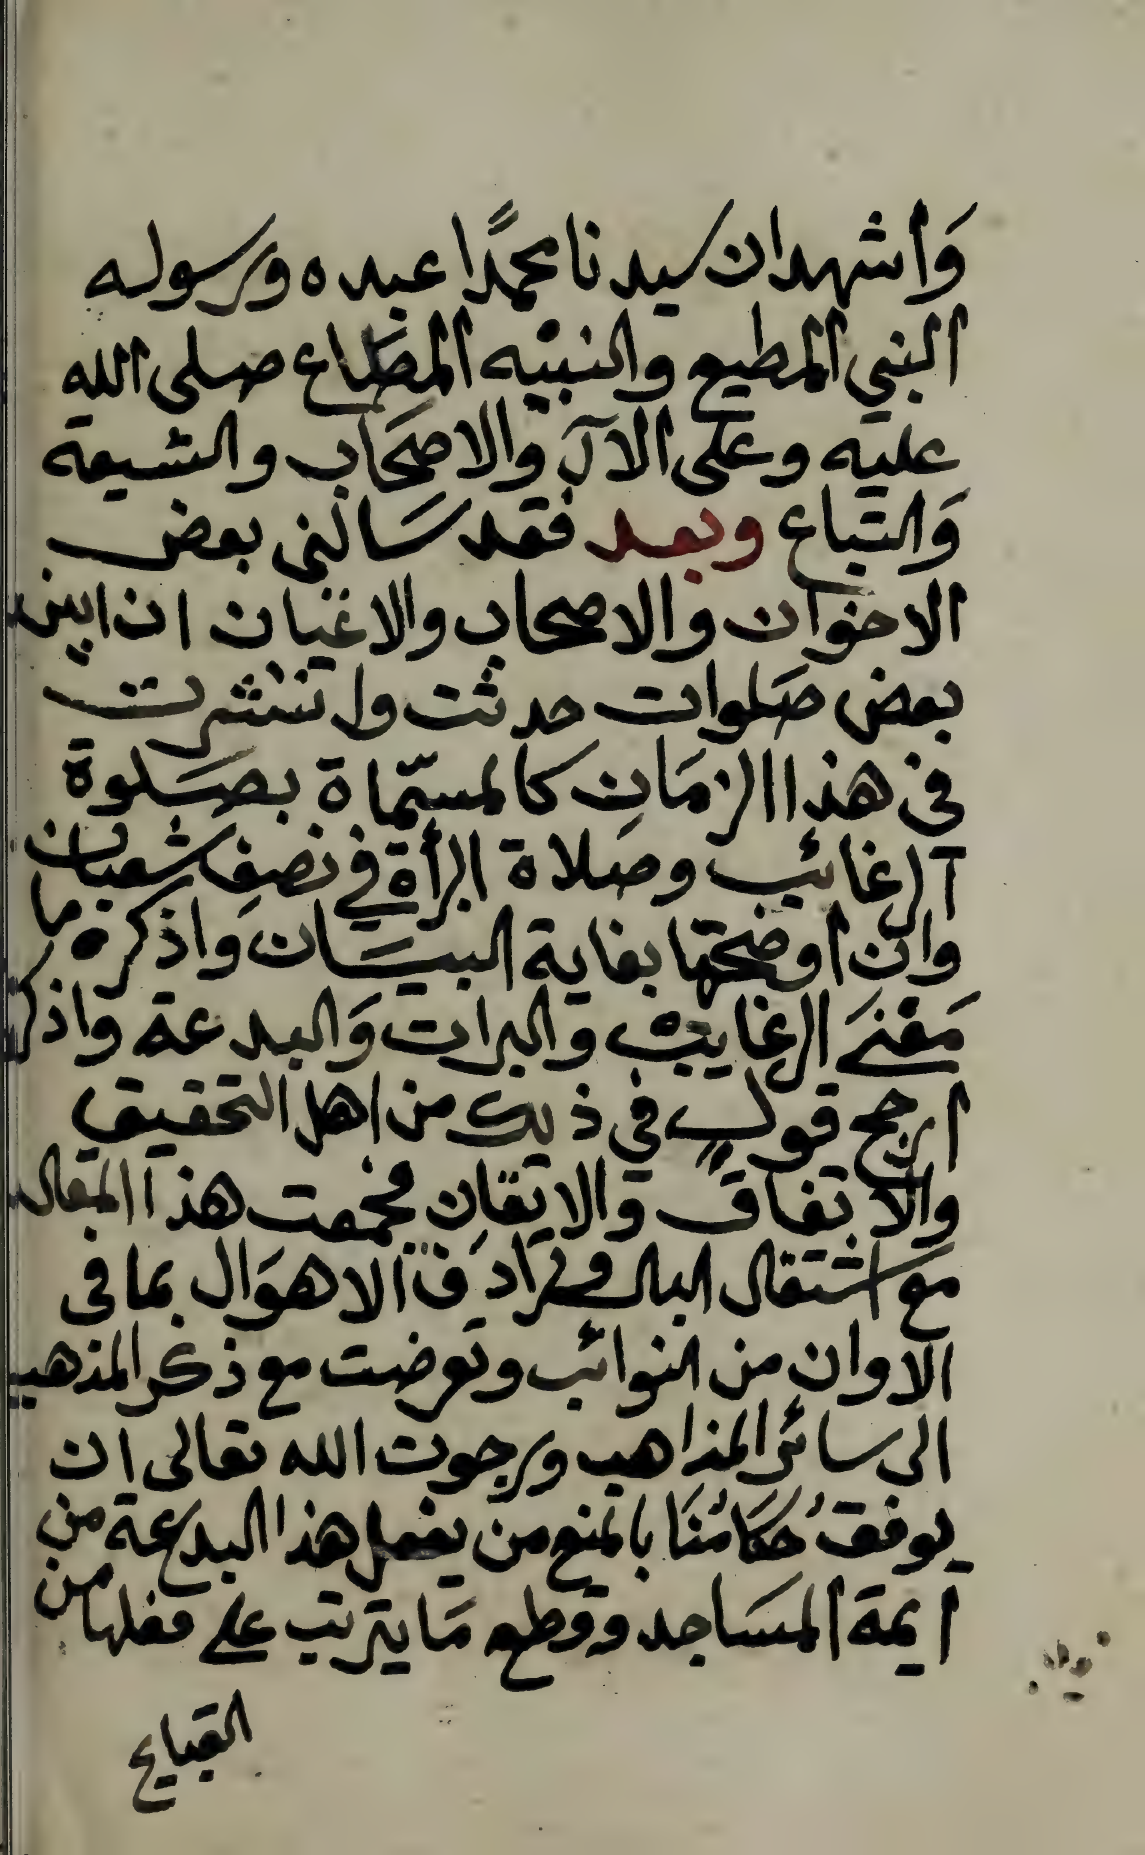 وَأشهد ان سيدنا محمدًا عبده ورسوله
النبي المطيع والنبيه المطاع صلى الله
عليه وعلى الآل والاصحاب والشيعة
وَالتباع وبعد فقد سَالنى بعض
الاخوان والاصحاب والاعيان ان ابين
بعض صَلوات حدثت وانتشرت
فى هذا الزمَان كالمسمّاة بصَلوة
الرغائب وصلاة البرأة في نصف شعبان
وان اوضحتها بغاية البيَان وَاذكره ما
مَعْنىَ الرغايب والبرات وَالبدعة واذكر
ارجح قول في ذلك من اهل التحقيق
والاتفاق والاتقان فجمعت هذا المقال
مع اشتغال البال وترادف الاهوَال بما فى
الاوان من النوائب وتعرضت مع ذكر المذهب
الى سائر المذاهب ورجوت الله تعالى ان
يوفقُ حكامُنَا بالمنع من يفعل هذا البدعة من
ايمة المسَاجد وقطع مَا يترتب على فعلها من
القبايح